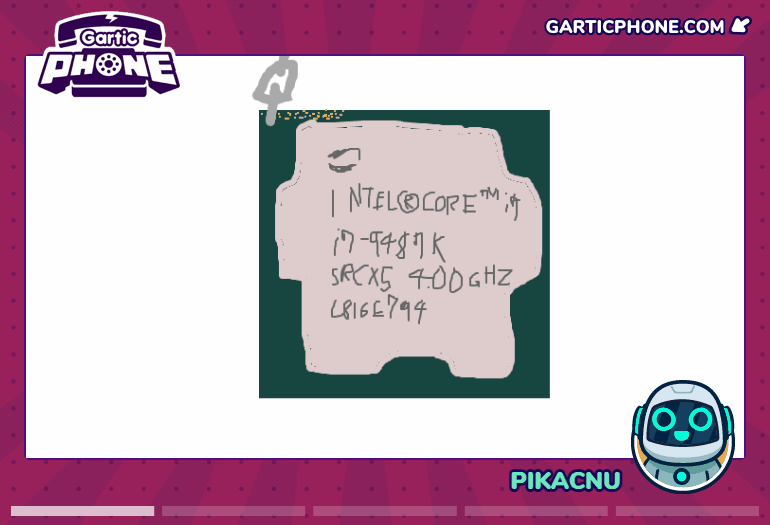 Gartic
PHONE
GARTICPHONE.COM
INTEL®CORE™ i7
i7-9487K
SRCX5 4.00GHZ
L816E794
PIKACNU